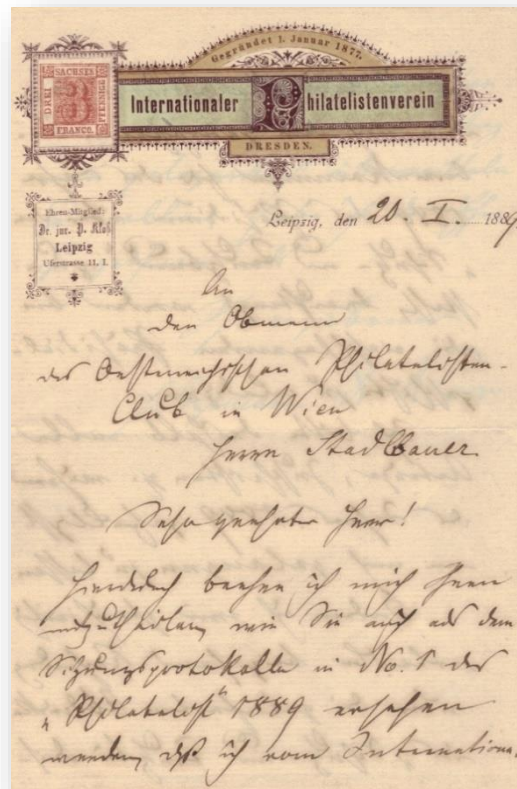 Gegründet 1. Januar 1877.
SACHSEN
DREI
3
PFENNIGE
FRANCO.
Internationaler Philatelistenverein
DRESDEN.
Ehren-Mitglied:
Dr. jur. P. Kloß
Leipzig
Uferstrasse 11. I.
Leipzig, den 20. I. 1889
An
den Obmann
des Oesterreichischen Philatelisten-
Club in Wien
Herrn Stadlbauer
Sehr geehrter Herr!
Hierdurch beehre ich mich Ihnen
mitzutheilen, wie Sie auch aus dem
Sitzungsprotokolle in No. 1 des
„Philatelist" 1889 ersehen
werden, daß ich vom Internationa-